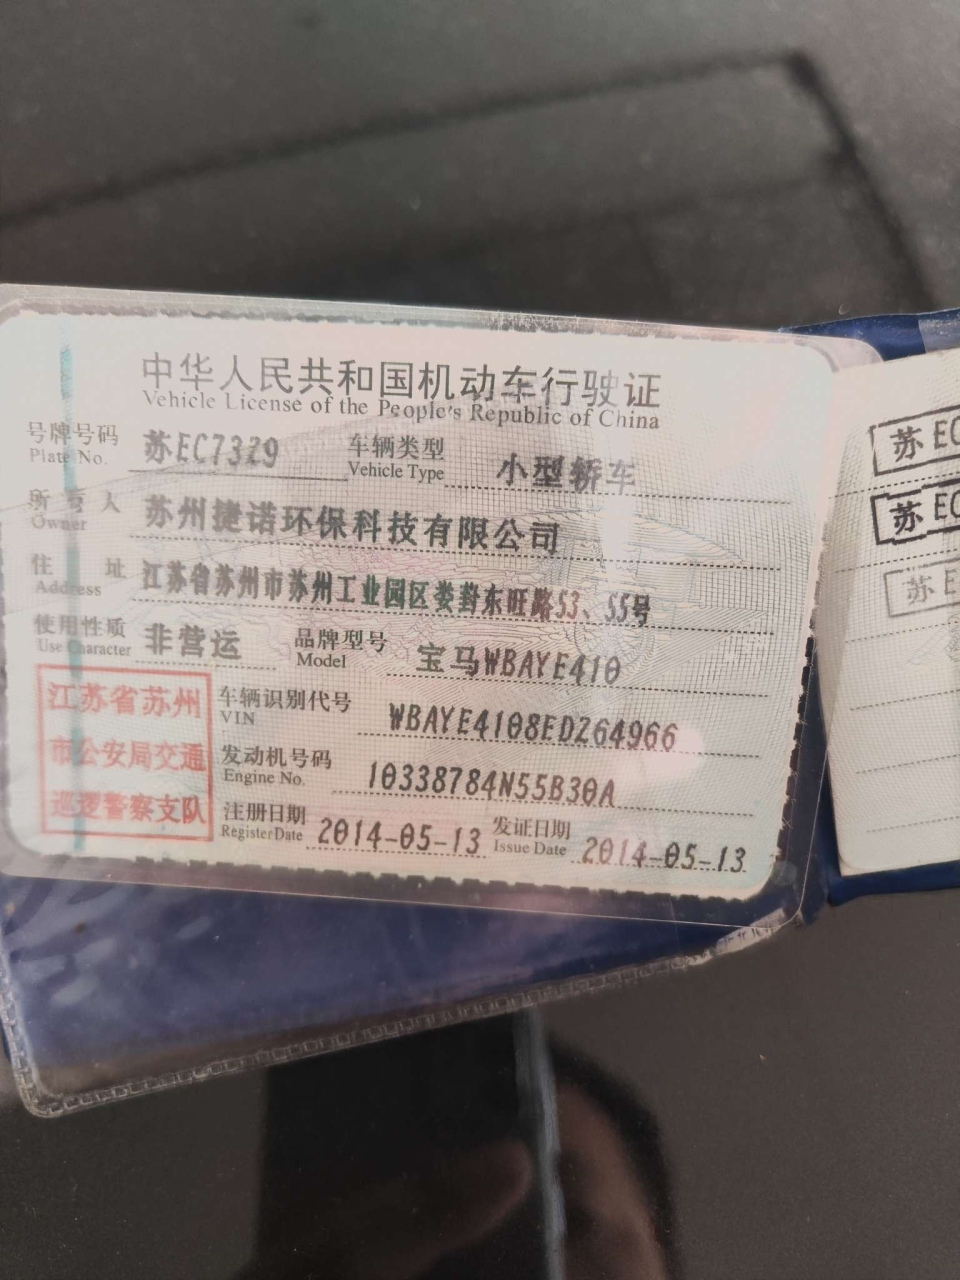 中华人民共和国机动车行驶证
Vehicle License of the People's Republic of China
号牌号码 苏EC7329 车辆类型 小型轿车
Plate No. Vehicle Type
所有人 苏州捷诺环保科技有限公司
Owner
住址 江苏省苏州市苏州工业园区娄葑东旺路53、55号
Address
使用性质 非营运 品牌型号 宝马WBAYE410
Use Character Model
江苏省苏州
市公安局交通
巡逻警察支队
车辆识别代号 WBAYE4108EDZ64966
VIN
发动机号码 10338784N55B30A
Engine No.
注册日期 2014-05-13 发证日期 2014-05-13
Register Date Issue Date
苏EC
苏EC
苏E